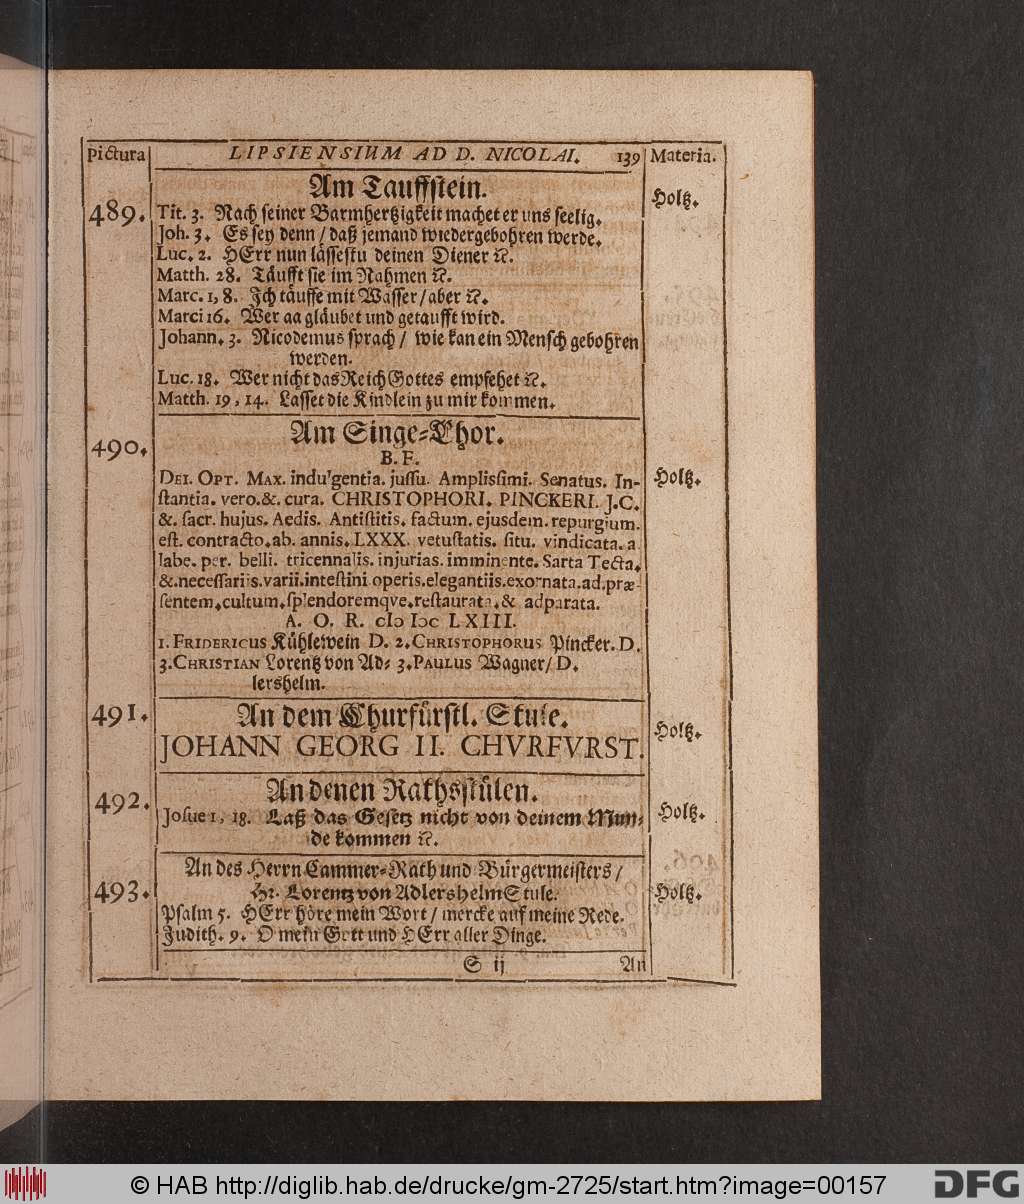 Pictura LIPSIENSIUM AD D. NICOLAI. 139 Materia.
Am Tauffstein.
489. Tit. 3. Nach seiner Barmhertzigkeit machet er uns seelig. Holtz.
Joh. 3. Es sey denn / daß jemand wiedergebohren werde.
Luc. 2. HErr nun lässestu deinen Diener ꝛc.
Matth. 28. Täufft sie im Nahmen ꝛc.
Marc. 1, 8. Ich täuffe mit Wasser / aber ꝛc.
Marci 16. Wer aa gläubet und getaufft wird.
Johann. 3. Nicodemus sprach / wie kan ein Mensch gebohren
werden.
Luc. 18. Wer nicht das Reich Gottes empfehet ꝛc.
Matth. 19, 14. Lasset die Kindlein zu mir kommen.
490. Am Singe-Chor.
B. F.
DEI. OPT. MAX. indulgentia. jussu. Amplissimi. Senatus. In- Holtz.
stantia. vero. &. cura. CHRISTOPHORI. PINCKERI. J.C.
&. sacr. hujus. Aedis. Antistitis. factum. ejusdem. repurgium.
est. contracto. ab. annis. LXXX. vetustatis. situ. vindicata. a
labe. per. belli. tricennalis. injurias. imminente. Sarta Tecta.
&. necessariis. varii. intestini operis. elegantiis. exornata. ad. præ-
sentem. cultum. splendoremqve. restaurata. & adparata.
A. O. R. cIɔ Iɔc LXIII.
1. FRIDERICUS Kühlewein D. 2. CHRISTOPHORUS Pincker. D.
3. CHRISTIAN Lorentz von Ad- 3. PAULUS Wagner / D.
lershelm.
491. An dem Churfürstl. Stule.
JOHANN GEORG II. CHVRFVRST. Holtz.
492. An denen Rathsstülen.
Josue 1, 18. Laß das Gesetz nicht von deinem Mun- Holtz.
de kommen ꝛc.
An des Herrn Cammer-Rath und Bürgermeisters /
493. Hr. Lorentz von Adlershelm Stule. Holtz.
Psalm 5. HErr höre mein Wort / mercke auf meine Rede.
Judith. 9. O mein Gott und HErr aller Dinge.
S ij An
© HAB http://diglib.hab.de/drucke/gm-2725/start.htm?image=00157
DFG